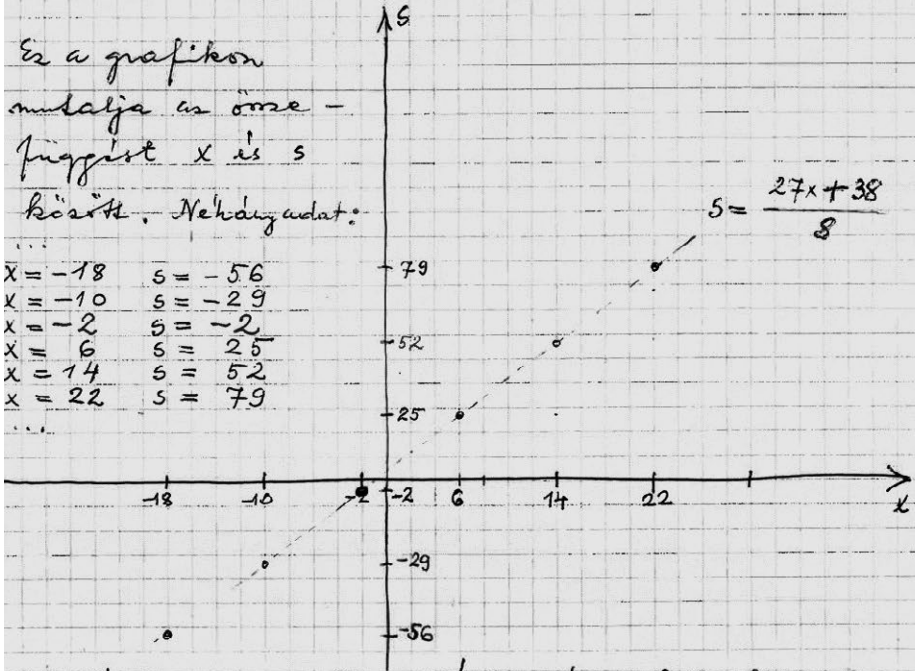 Ez a grafikon
mutatja az össze-
függést x és s
között. Néhány adat:
...
x = -18 s = -56
x = -10 s = -29
x = -2 s = -2
x = 6 s = 25
x = 14 s = 52
x = 22 s = 79
...
s
s = (27x + 38) / 8
79
52
25
-18 -10 -2 -2 6 14 22 x
-29
-56